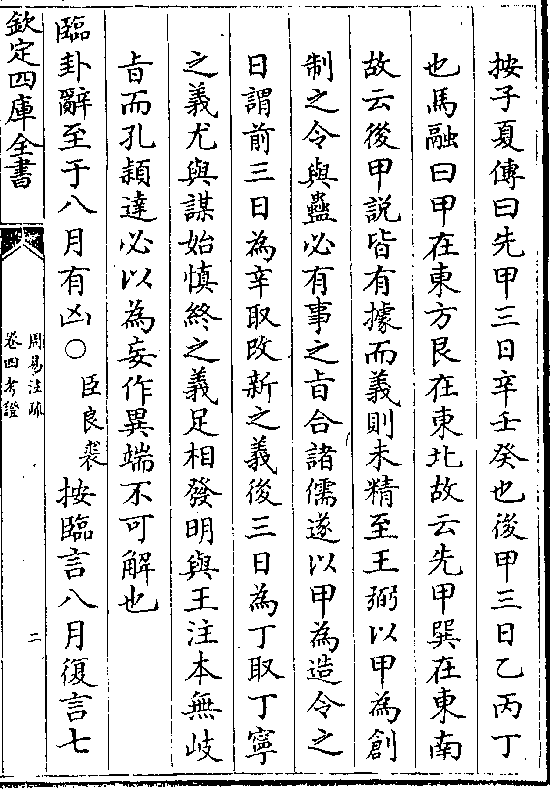 按子夏傳曰先甲三日辛壬癸也後甲三日乙丙丁
也馬融曰甲在東方艮在東北故云先甲巽在東南
故云後甲說皆有據而義則未精至王弼以甲為創
制之令與蠱必有事之旨合諸儒遂以甲為造令之
日謂前三日為辛取改新之義後三日為丁取丁寧
之義尤與謀始慎終之義足相發明與王注本無歧
旨而孔穎達必以為妄作異端不可解也
臨卦辭至于八月有凶○臣良裘按臨言八月復言七
欽定四庫全書
周易注疏
卷四考證
二